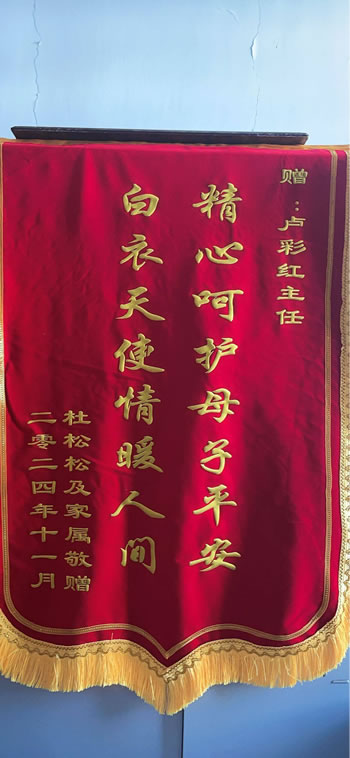 赠：卢彩红主任
精心呵护母子平安
白衣天使情暖人间
杜松松及家属敬赠
二零二四年十一月